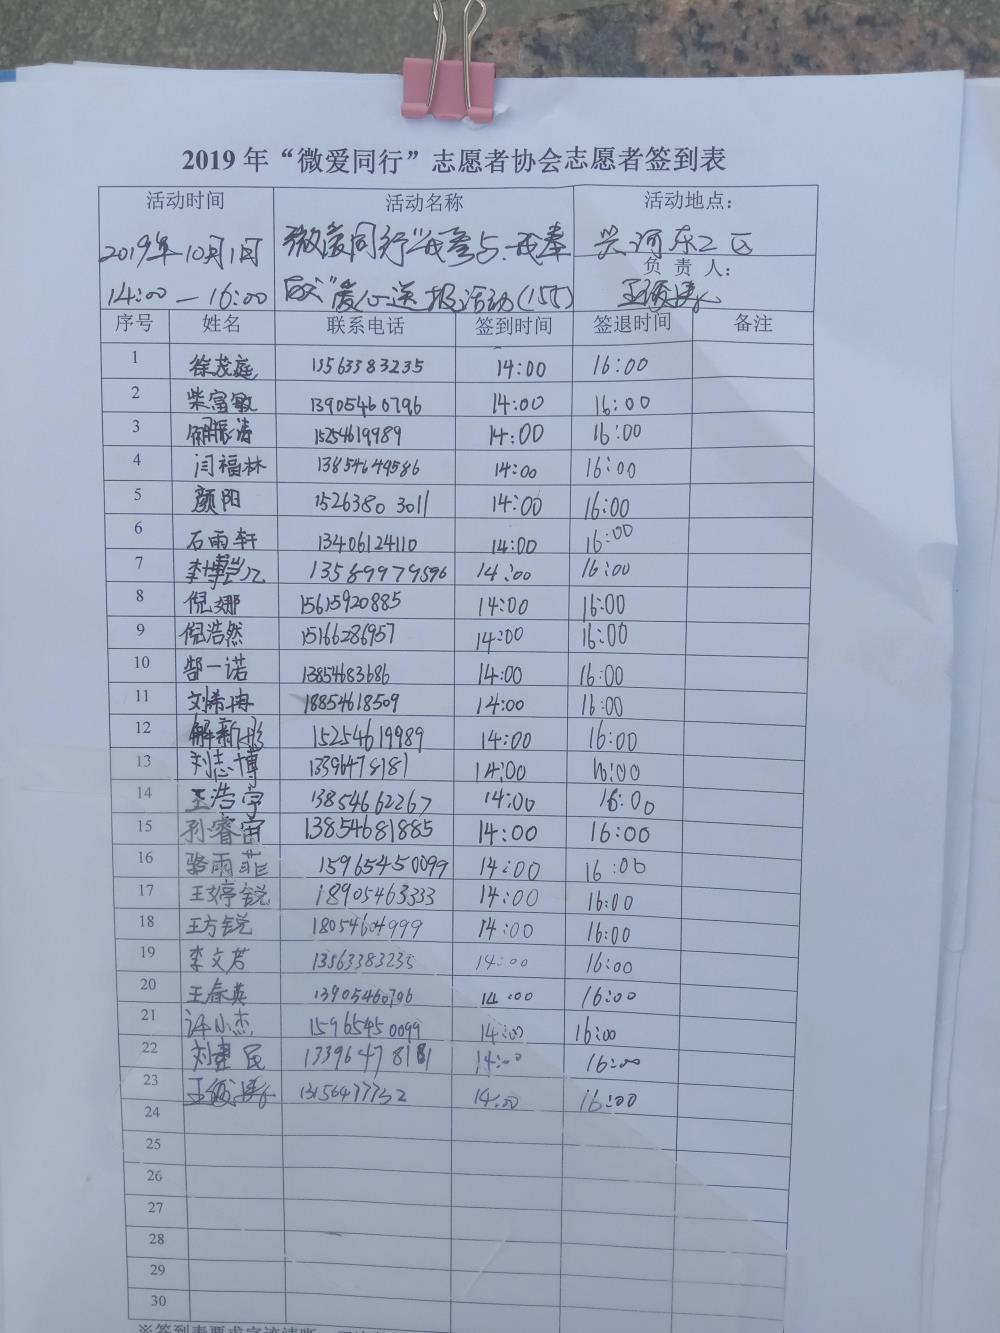 2019年“微爱同行”志愿者协会志愿者签到表
活动时间 活动名称 活动地点：
2019年10月1日 微爱同行"我参与.我奉 兴河东二区
负责人：
14:00—16:00 "爱心送报活动(155) 王
序号 姓名 联系电话 签到时间 签退时间 备注
1 徐茂庭 13563383235 14:00 16:00
2 柴富敏 13905460796 14:00 16:00
3 振涛 15254619989 14:00 16:00
4 闫福林 13854649586 14:00 16:00
5 颜阳 15263803011 14:00 16:00
6 石雨轩 13406124110 14:00 16:00
7 李博 13589979596 14:00 16:00
8 倪娜 15615920885 14:00 16:00
9 倪浩然 15166286957 14:00 16:00
10 郜一诺 13854683686 14:00 16:00
11 刘希冉 18854618509 14:00 16:00
12 解新彤 15254619989 14:00 16:00
13 刘志博 13396478181 14:00 16:00
14 王浩宇 13854662267 14:00 16:00
15 孙睿宙 13854681885 14:00 16:00
16 骆雨菲 15965450099 14:00 16:00
17 王婷锐 18905463333 14:00 16:00
18 王方锐 18054604999 14:00 16:00
19 李文芳 13563383235 14:00 16:00
20 王春英 13905460796 14:00 16:00
21 许小杰 15965450099 14:00 16:00
22 刘建民 13396478181 14:00 16:00
23 王 13156477732 14:00 16:00
24
25
26
27
28
29
30
※签到表要求字迹清晰